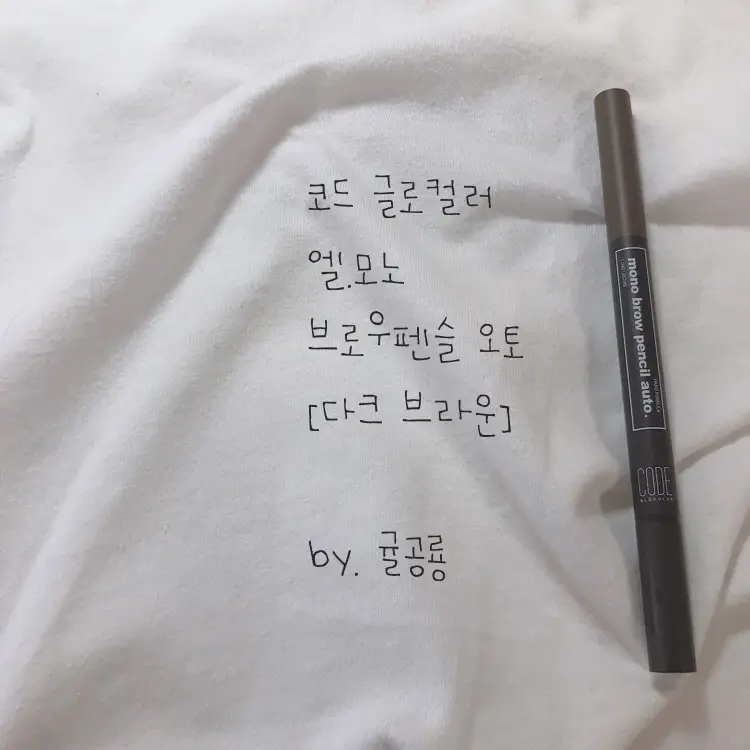 코드 글로컬러
엘.모노
브로우펜슬 오토
[다크 브라운]
by. 귤공룡
mono brow pencil auto.
CODE
GLOKOLOR